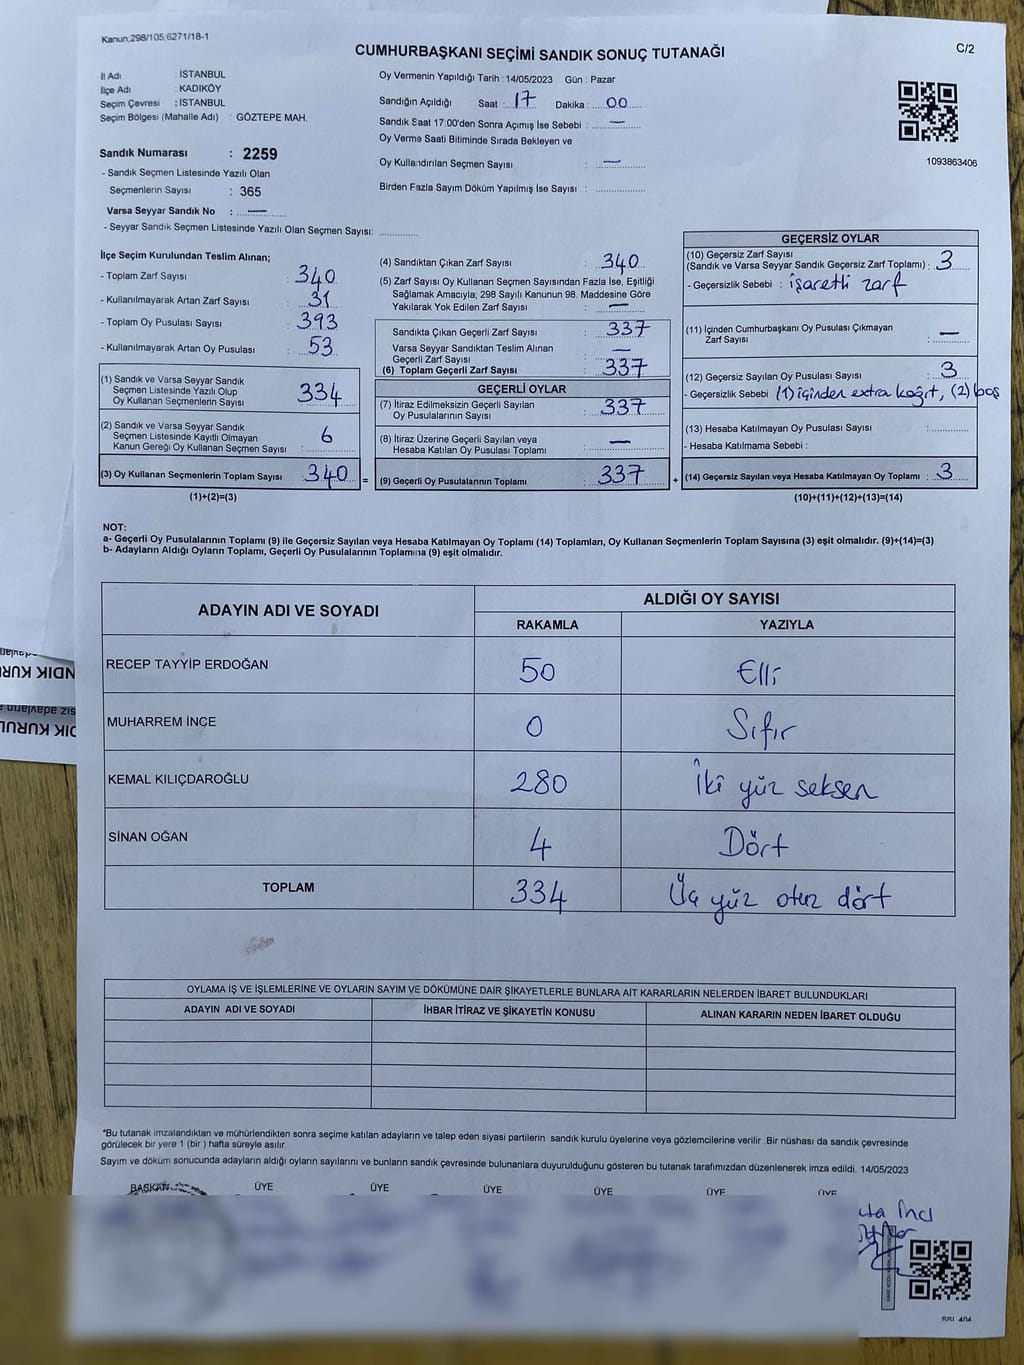 Kanun:298/105,6271/18-1
CUMHURBAŞKANI SEÇİMİ SANDIK SONUÇ TUTANAĞI
C/2
İl Adı : İSTANBUL
İlçe Adı : KADIKÖY
Seçim Çevresi : İSTANBUL
Seçim Bölgesi (Mahalle Adı) : GÖZTEPE MAH.
Sandık Numarası : 2259
- Sandık Seçmen Listesinde Yazılı Olan
Seçmenlerin Sayısı : 365
Varsa Seyyar Sandık No : —
- Seyyar Sandık Seçmen Listesinde Yazılı Olan Seçmen Sayısı: ............
Oy Vermenin Yapıldığı Tarih : 14/05/2023 Gün : Pazar
Sandığın Açıldığı Saat : 17 Dakika : 00
Sandık Saat 17:00'den Sonra Açımış İse Sebebi : —
Oy Verme Saati Bitiminde Sırada Bekleyen ve
Oy Kullandırılan Seçmen Sayısı : —
Birden Fazla Sayım Döküm Yapılmış İse Sayısı : ................
1093863406
İlçe Seçim Kurulundan Teslim Alınan;
- Toplam Zarf Sayısı : 340
- Kullanılmayarak Artan Zarf Sayısı : 31
- Toplam Oy Pusulası Sayısı : 393
- Kullanılmayarak Artan Oy Pusulası : 53
(1) Sandık ve Varsa Seyyar Sandık
Seçmen Listesinde Yazılı Olup
Oy Kullanan Seçmenlerin Sayısı : 334
(2) Sandık ve Varsa Seyyar Sandık
Seçmen Listesinde Kayıtlı Olmayan
Kanun Gereği Oy Kullanan Seçmen Sayısı : 6
(3) Oy Kullanan Seçmenlerin Toplam Sayısı : 340 =
(1)+(2)=(3)
(4) Sandıktan Çıkan Zarf Sayısı : 340
(5) Zarf Sayısı Oy Kullanan Seçmen Sayısından Fazla İse, Eşitliği
Sağlamak Amacıyla; 298 Sayılı Kanunun 98. Maddesine Göre
Yakılarak Yok Edilen Zarf Sayısı : —
Sandıkta Çıkan Geçerli Zarf Sayısı : 337
Varsa Seyyar Sandıktan Teslim Alınan
Geçerli Zarf Sayısı : —
(6) Toplam Geçerli Zarf Sayısı : 337
GEÇERLİ OYLAR
(7) İtiraz Edilmeksizin Geçerli Sayılan
Oy Pusulalarının Sayısı : 337
(8) İtiraz Üzerine Geçerli Sayılan veya
Hesaba Katılan Oy Pusulası Toplamı : —
(9) Geçerli Oy Pusulalarının Toplamı : 337 +
GEÇERSİZ OYLAR
(10) Geçersiz Zarf Sayısı
(Sandık ve Varsa Seyyar Sandık Geçersiz Zarf Toplamı) : 3
- Geçersizlik Sebebi : işaretli zarf
(11) İçinden Cumhurbaşkanı Oy Pusulası Çıkmayan
Zarf Sayısı : —
(12) Geçersiz Sayılan Oy Pusulası Sayısı : 3
- Geçersizlik Sebebi (1) içinden extra kağıt, (2) boş
(13) Hesaba Katılmayan Oy Pusulası Sayısı : ............
- Hesaba Katılmama Sebebi :
(14) Geçersiz Sayılan veya Hesaba Katılmayan Oy Toplamı : 3
(10)+(11)+(12)+(13)=(14)
NOT:
a- Geçerli Oy Pusulalarının Toplamı (9) ile Geçersiz Sayılan veya Hesaba Katılmayan Oy Toplamı (14) Toplamları, Oy Kullanan Seçmenlerin Toplam Sayısına (3) eşit olmalıdır. (9)+(14)=(3)
b- Adayların Aldığı Oyların Toplamı, Geçerli Oy Pusulalarının Toplamına (9) eşit olmalıdır.
ADAYIN ADI VE SOYADI
ALDIĞI OY SAYISI
RAKAMLA YAZIYLA
RECEP TAYYİP ERDOĞAN 50 Elli
MUHARREM İNCE 0 Sıfır
KEMAL KILIÇDAROĞLU 280 İki yüz seksen
SİNAN OĞAN 4 Dört
TOPLAM 334 Üç yüz otuz dört
OYLAMA İŞ VE İŞLEMLERİNE VE OYLARIN SAYIM VE DÖKÜMÜNE DAİR ŞİKAYETLERLE BUNLARA AİT KARARLARIN NELERDEN İBARET BULUNDUKLARI
ADAYIN ADI VE SOYADI İHBAR İTİRAZ VE ŞİKAYETİN KONUSU ALINAN KARARIN NEDEN İBARET OLDUĞU
*Bu tutanak imzalandıktan ve mühürlendikten sonra seçime katılan adayların ve talep eden siyasi partilerin sandık kurulu üyelerine veya gözlemcilerine verilir .Bir nüshası da sandık çevresinde
görülecek bir yere 1 (bir ) hafta süreyle asılır.
Sayım ve döküm sonucunda adayların aldığı oyların sayılarını ve bunların sandık çevresinde bulunanlara duyurulduğunu gösteren bu tutanak tarafımızdan düzenlenerek imza edildi. 14/05/2023
BAŞKAN ÜYE ÜYE ÜYE ÜYE ÜYE ÜYE